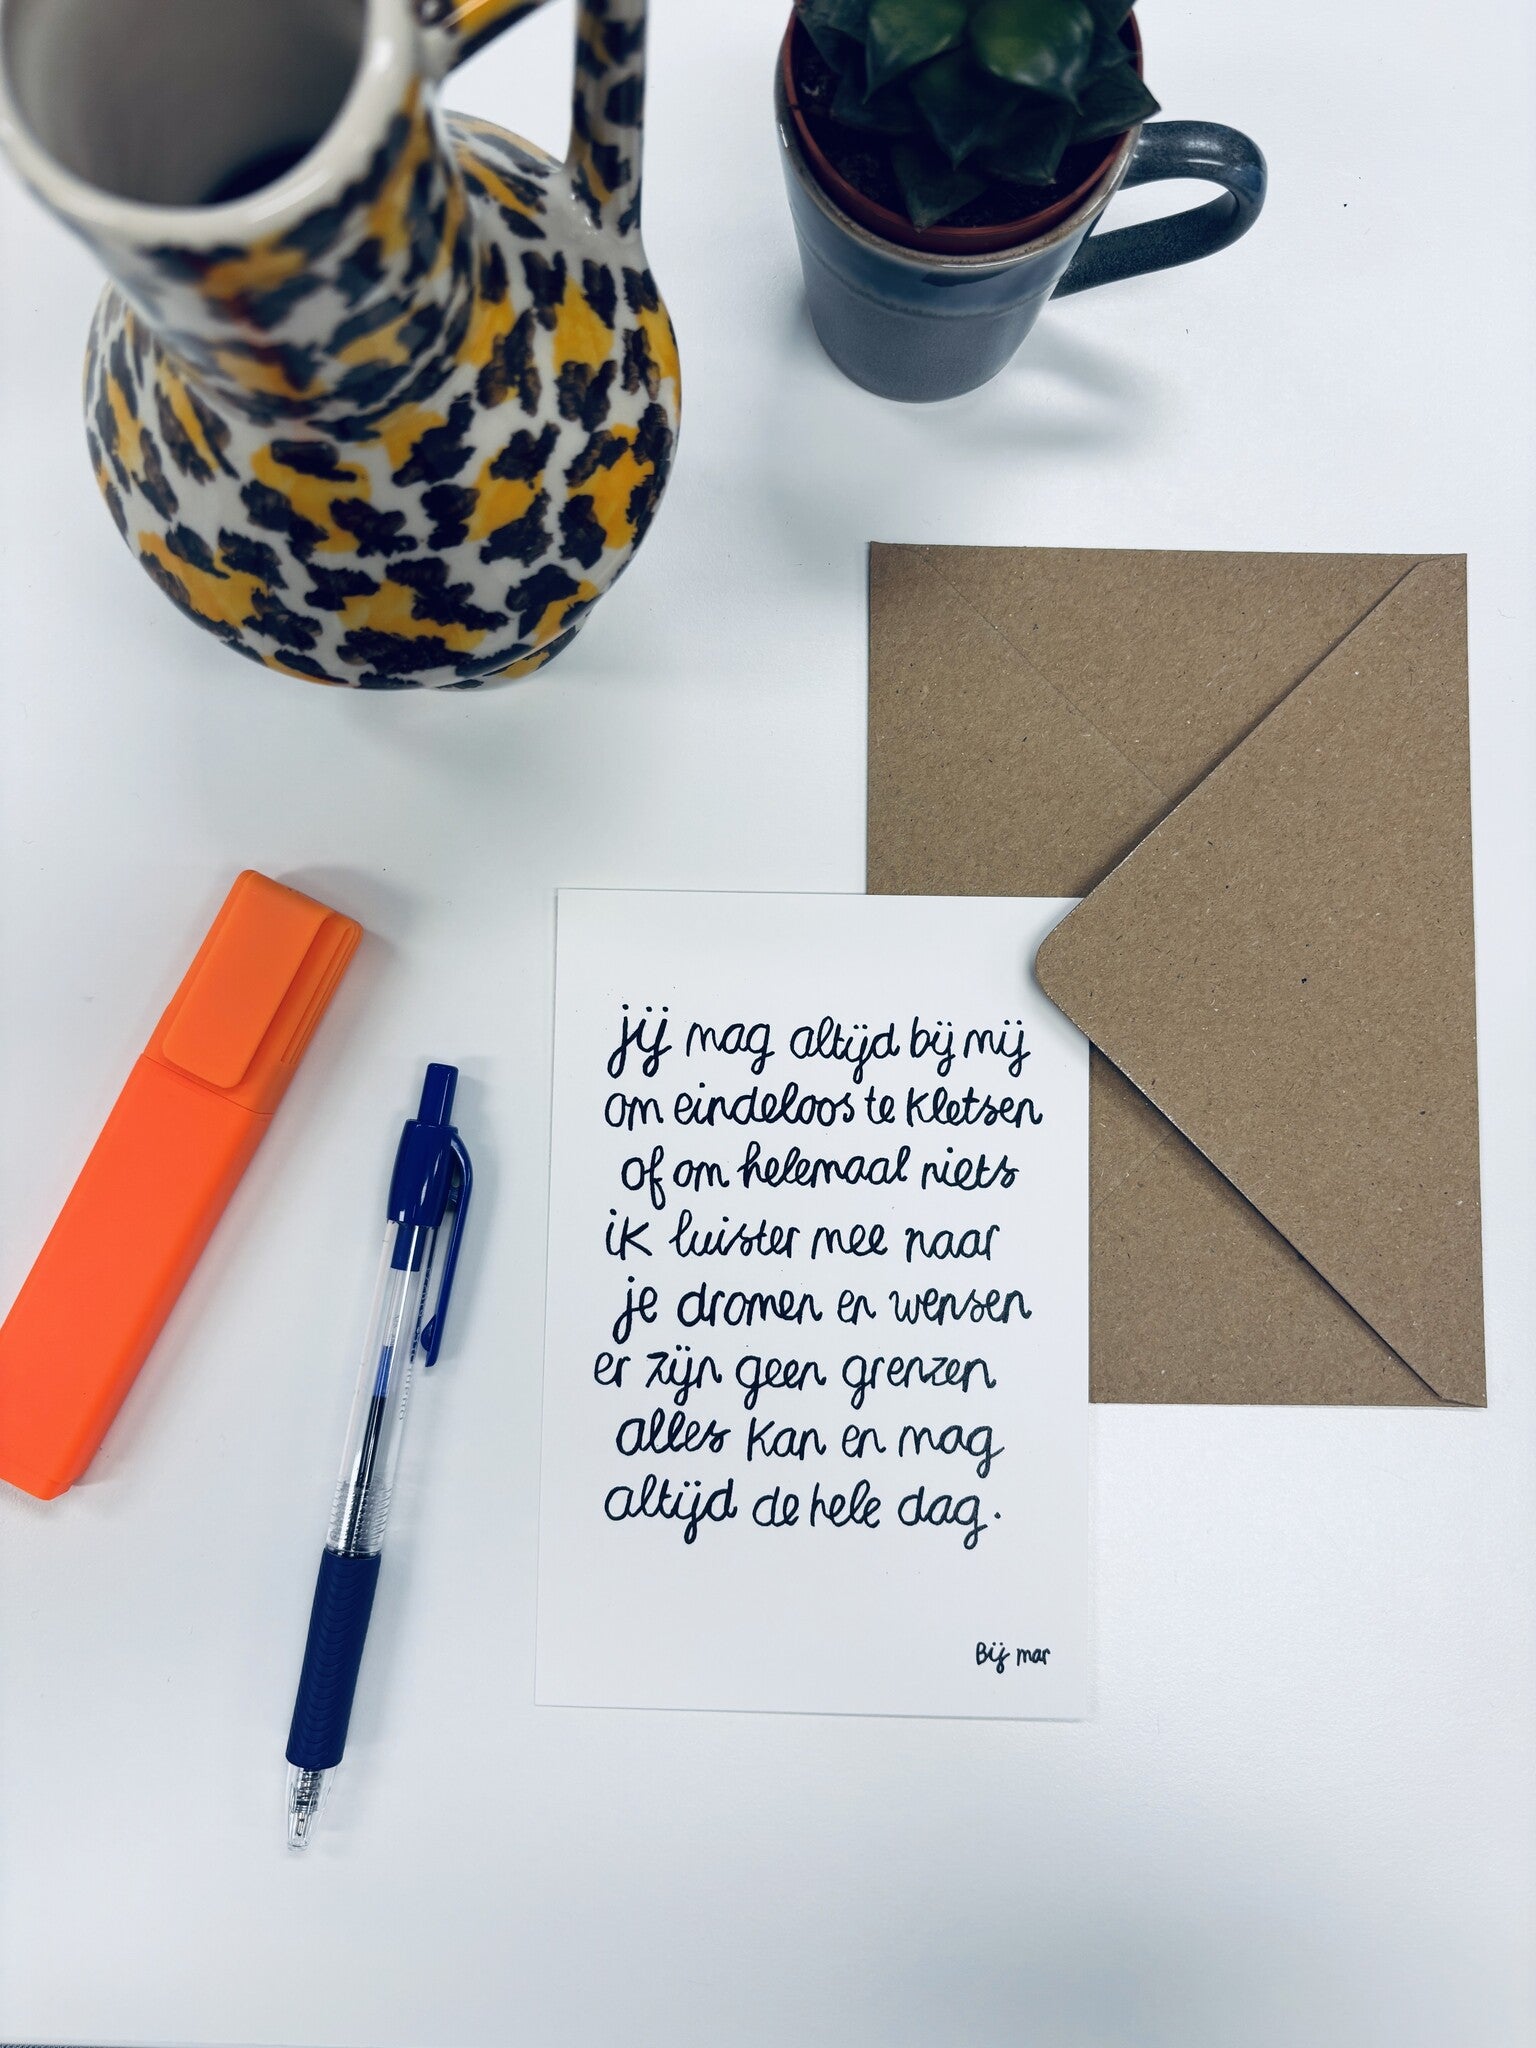 jij mag altijd bij mij
om eindeloos te kletsen
of om helemaal niets
ik luister mee naar
je dromen en wensen
er zijn geen grenzen
alles kan en mag
altijd de hele dag.
Bij mar